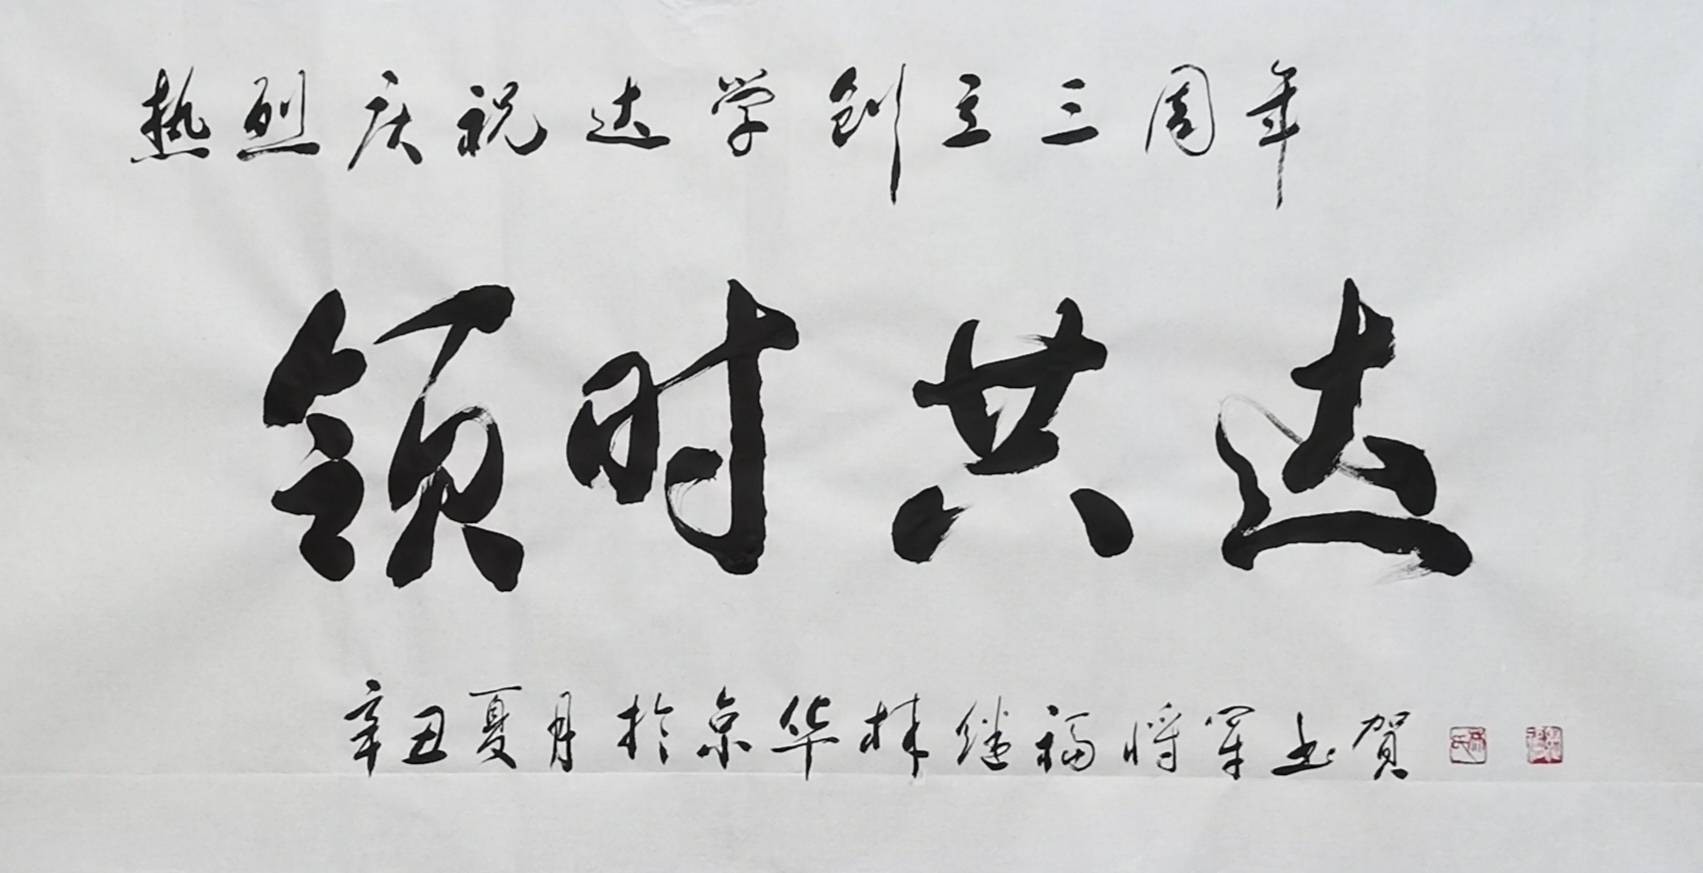 热烈庆祝达学创立三周年
领时共达
辛丑夏月於京华林继福将军书贺